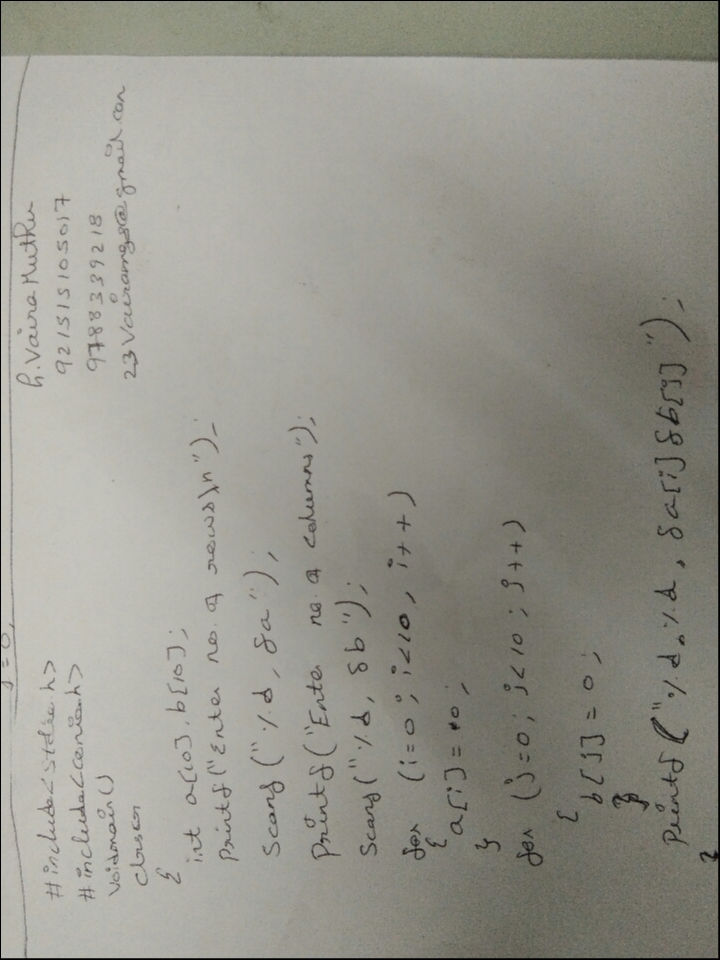 j=0,
h. Vaira Muthu
921515105017
9788339218
#include<stdio.h>
#include<conio.h>
Voidmain()
Clrscr
{
int a[10], b[10];
Printf("Enter no. of rows\n");
Scanf("%d, &a");
Printf("Enter no. of columns");
Scanf("%d, &b");
for (i=0; i<10, i++)
{
a[i]=0;
}
for (j=0; j<10; j++)
{
b[j]=0;
}
Printf("%d,%d, &a[i]&b[j]");
}